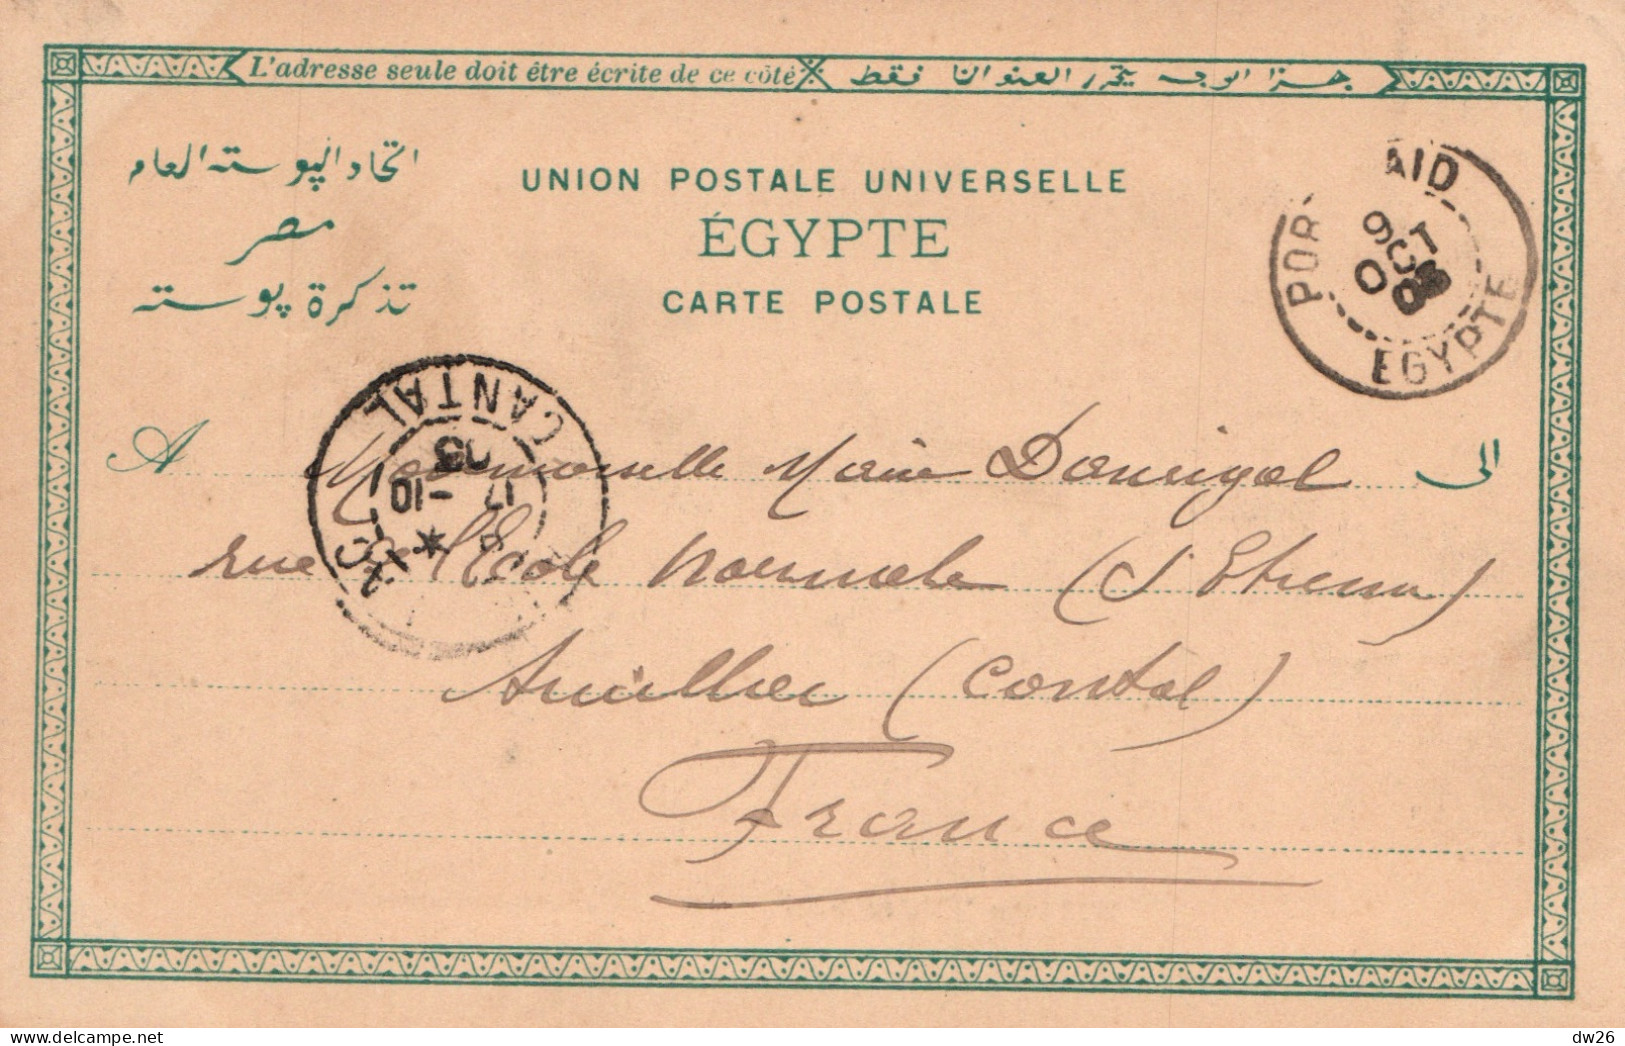 L'adresse seule doit être écrite de ce côté
هذا الوجه يتحرر العنوان فقط
اتحاد البوسته العام
مصر
تذكرة بوسته
UNION POSTALE UNIVERSELLE
ÉGYPTE
CARTE POSTALE
POR AID
9 OCT
EGYPTE
CANTAL
17 -10
A Mademoiselle Marie الى
rue de l'Ecole Normale (St Etienne)
Aurillac (Cantal)
France
dw26